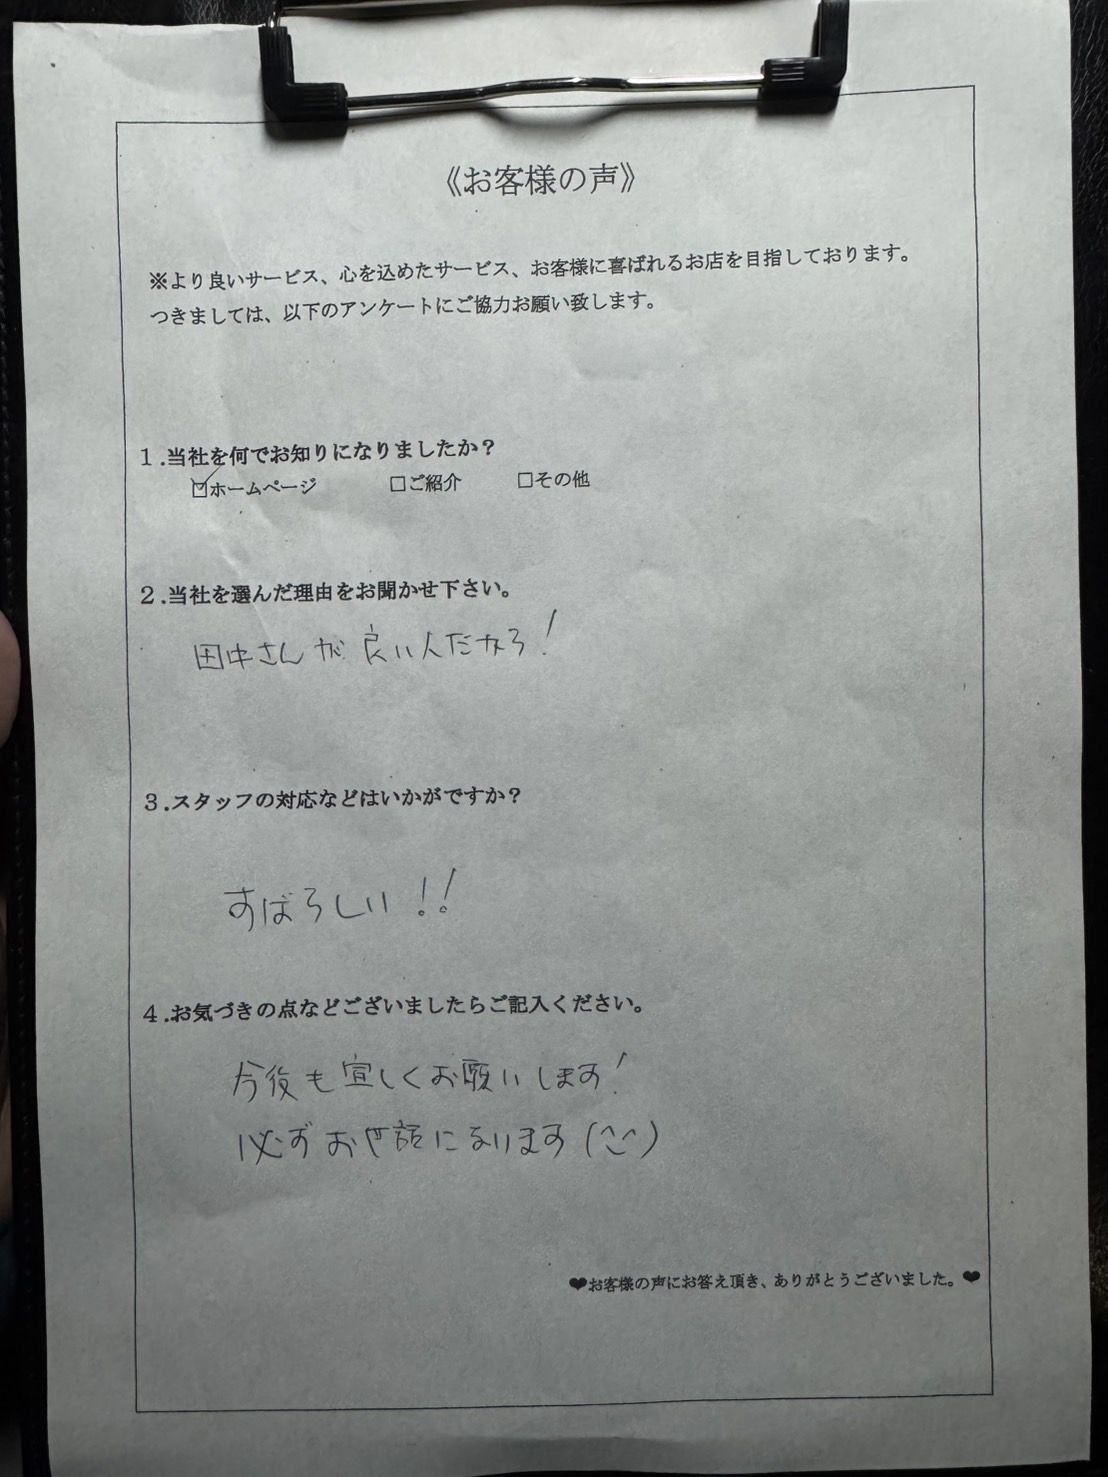 《お客様の声》
※より良いサービス、心を込めたサービス、お客様に喜ばれるお店を目指しております。
つきましては、以下のアンケートにご協力お願い致します。
１.当社を何でお知りになりましたか？
☑ホームページ　□ご紹介　□その他
２.当社を選んだ理由をお聞かせ下さい。
田中さんが良い人だから！
３.スタッフの対応などはいかがですか？
すばらしい！！
４.お気づきの点などございましたらご記入ください。
今後も宜しくお願いします！
必ずお世話になります(^^)
❤お客様の声にお答え頂き、ありがとうございました。❤